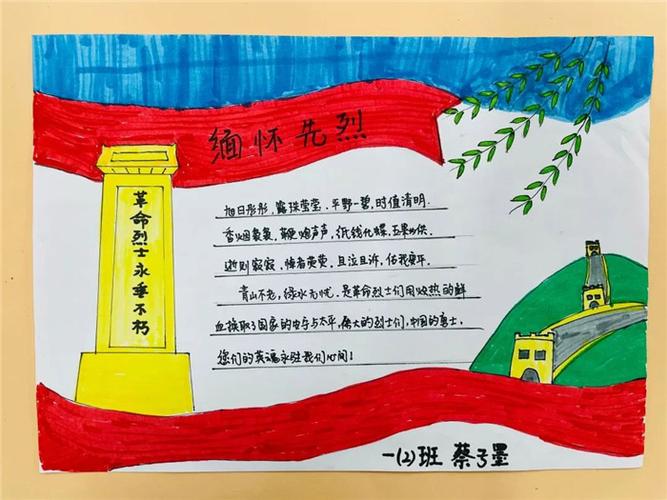 缅怀先烈
革命烈士永垂不朽
旭日彤彤，露珠莹莹，平野一碧，时值清明．
香烟袅袅，鞭炮声声，纸钱化蝶，五果为供．
逝则寂寂，悼者茕茕，且泣且诉，佑我康平．
青山不老，绿水无忧，是革命烈士们用炽热的鲜
血换取了国家的安宁与太平，伟大的烈士们，中国的勇士，
您们的英魂永驻我们心间！
一(2)班 蔡子墨